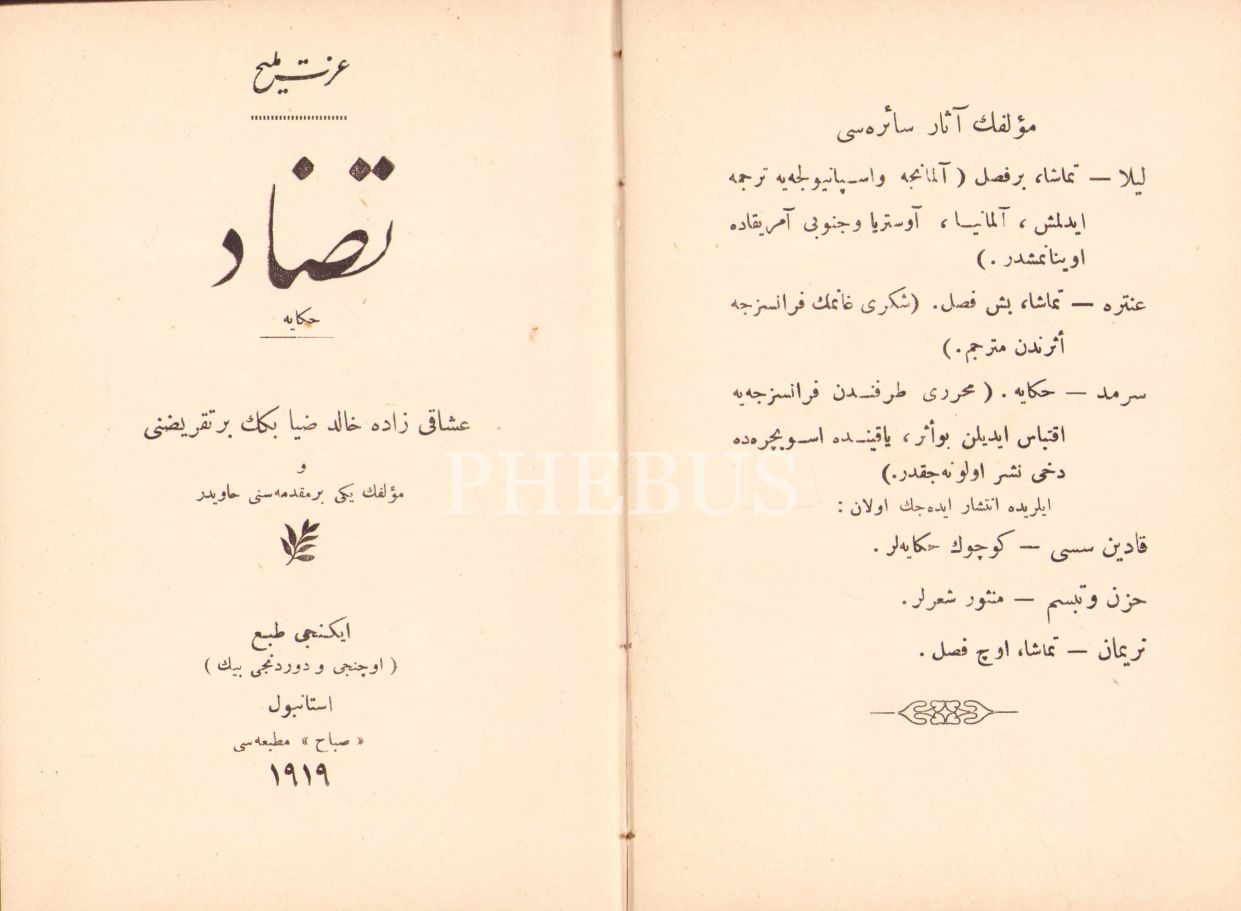 مؤلفك آثار سائره‌سی
لیلا — تماشا، برفصل ( آلمانجه واسپانیولجه‌یه ترجمه
ایدلمش ، آلمانیا ، آوستریا وجنوبی آمریقاده
اوینانمشدر . )
عنتره — تماشا، بش فصل . (شکری غانمك فرانسزجه
أثرندن مترجم . )
سرمد — حکایه . ( محرری طرفندن فرانسزجه‌یه
اقتباس ایدیلن بوأثر ، یاقینده اسویچره‌ده
دخی نشر اولونه‌جقدر.)
ایلریده انتشار ایده‌جك اولان :
قادین سسی — کوچوك حکایه‌لر .
حزن وتبسم — منثور شعرلر .
نریمان — تماشا، اوچ فصل .
عزت ملیح
تضاد
حکایه
عشاقی زاده خالد ضیا بكك بر تقریضنی
و
مؤلفك یکی بر مقدمه‌سنی حاویدر
ایکنجی طبع
( اوچنجی و دوردنجی بیك )
استانبول
« صباح » مطبعه‌سی
١٩١٩
PHEBUS